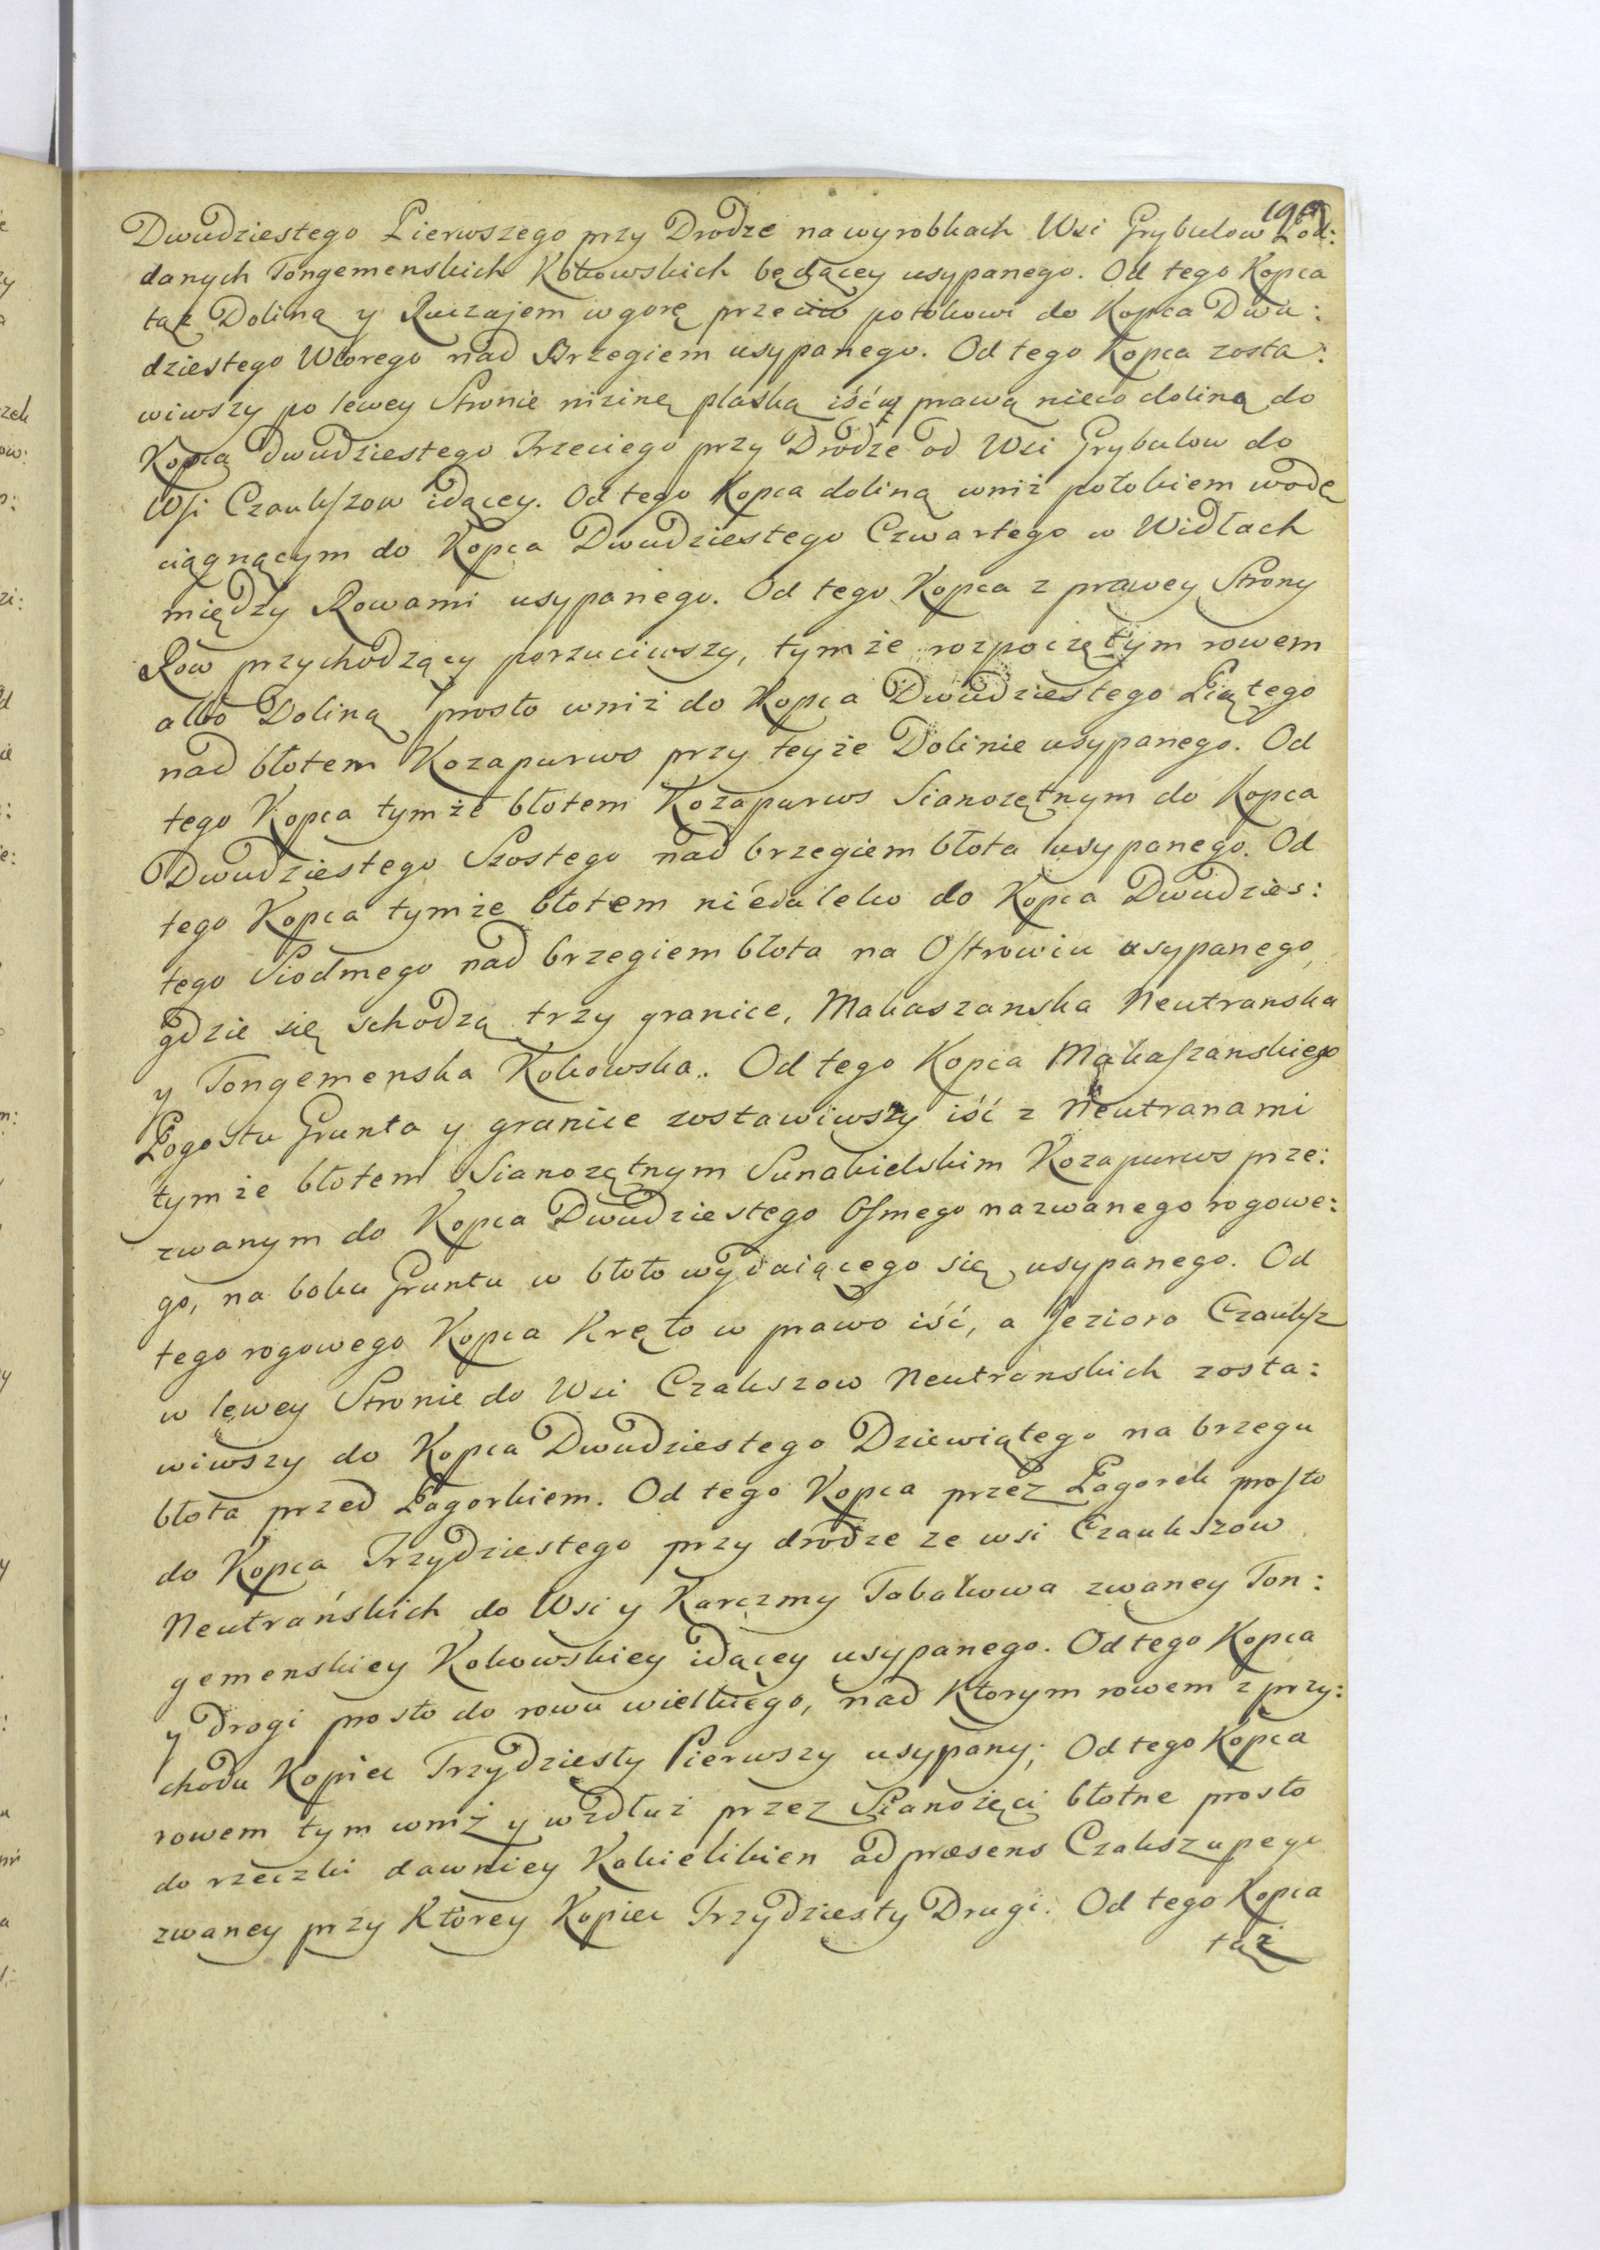 Dwudziestego Pierwszego przy Drodze na wyrobkach Wsi Grybulow Pod:
danych Tongemenskich Kokowskich będącey usypanego. Od tego Kopca
tąż Doliną y Ruczajem w gorę przeciw potokowi do Kopca Dwu:
dziestego Wtorego nad Brzegiem usypanego. Od tego Kopca zosta:
wiwszy po lewey Stronie nizinę płaską iść w prawą nieco doliną do
Kopca dwudziestego Trzeciego przy Drodze od Wsi Grybulow do
Wsi Czaukszow idącey. Od tego Kopca doliną wniż potokiem wodę
ciągnącym do Kopca Dwudziestego Czwartego w Widłach
między Rowami usypanego. Od tego Kopca z prawey Strony
Row przychodzący porzuciwszy, tymże rozpoczętym rowem
albo Doliną prosto wniż do Kopca Dwudziestego Piątego
nad błotem Kozapurws przy teyże Dolinie usypanego. Od
tego Kopca tymże błotem Kozapurws Sianożętnym do Kopca
Dwudziestego Szostego nad brzegiem błota usypanego. Od
tego Kopca tymże błotem niedaleko do Kopca Dwudzies:
tego Siodmego nad brzegiem błota na Ostrowiu usypanego,
gdzie się schodzą trzy granice, Makaszanska Neutranska
y Tongemenska Kokowska. Od tego Kopca Makaszanskiego
Pogostu Grunta y granice zostawiwszy iść z Neutranami
tymże błotem Sianożętnym Sunakielskim Kozapurws prze:
zwanym do Kopca Dwudziestego Osmego nazwanego rogowe:
go, na boku Gruntu w błoto wydaiącego się usypanego. Od
tego rogowego Kopca Kręto w prawo iść, a Jezioro Czauksz
w lewey Stronie do Wsi Czakszow Neutranskich zosta:
wiwszy do Kopca Dwudziestego Dziewiątego na brzegu
błota przed Pagorkiem. Od tego Kopca przez Pagorek prosto
do Kopca Trzydziestego przy drodze ze wsi Czaukszow
Neutrańskich do Wsi y Karczmy Tabakowa zwaney Ton:
gemenskiey Kokowskiey idącey usypanego. Od tego Kopca
y Drogi prosto do rowu wielkiego, nad Ktorym rowem z przy:
chodu Kopiec Trzydziesty Pierwszy usypany; Od tego Kopca
rowem tym wniż y wzdłuż przez Sianożęci błotne prosto
do rzeczki dawniey Kakielikien ad præsens Czakszupege
zwaney przy Ktorey Kopiec Trzydziesty Drugi. Od tego Kopca
tąż